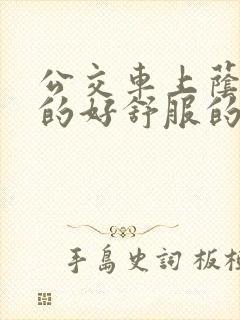 公交車上蔭
的好舒服的
手島史詞 板